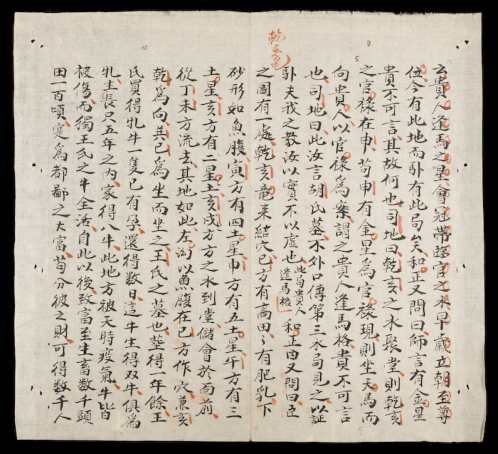 云貴人逢馬之星會冠帶臨官之來早歲立朝至尊
伍今有此地而卦有此局公令和正又問曰師言有金星
貴不可言其故何也司地曰乾亥之水聚堂則乾亥
之官祿在申苟申有金星爲官祿現則坐天馬而
向貴人以官祿爲案謂之貴人逢馬格貴不可言
也司地曰此汝言胡氏墓水外口傳第三水局見之以証
卦夫我之教汝以實不以虛也
此局貴人
逢馬格
和正曰又問曰臣
之固有一處乾亥竜來結穴巳方有高田々有肥乳下
砂形如魚腹寅方有四土星巾方有五土星午方有三
土星亥方有二星土亥戌方方之水到堂儲會於面前
從丁未方流去其地如此左渮以魚腹在巳方作穴兼亥
乾爲向其巳爲坐而坐之王氏之墓也塟得一年餘王
氏買得牝牛一隻已有孕還得數日這牛生得双牛俱爲
牝主畏只五年之内家得八牛此地方被天時疫氣牛皆
被傷而獨王氏之牛全活自此以後致富至生畜數千頭
田一百頃寔爲都鄙之大富苟分彼之財可得数千人